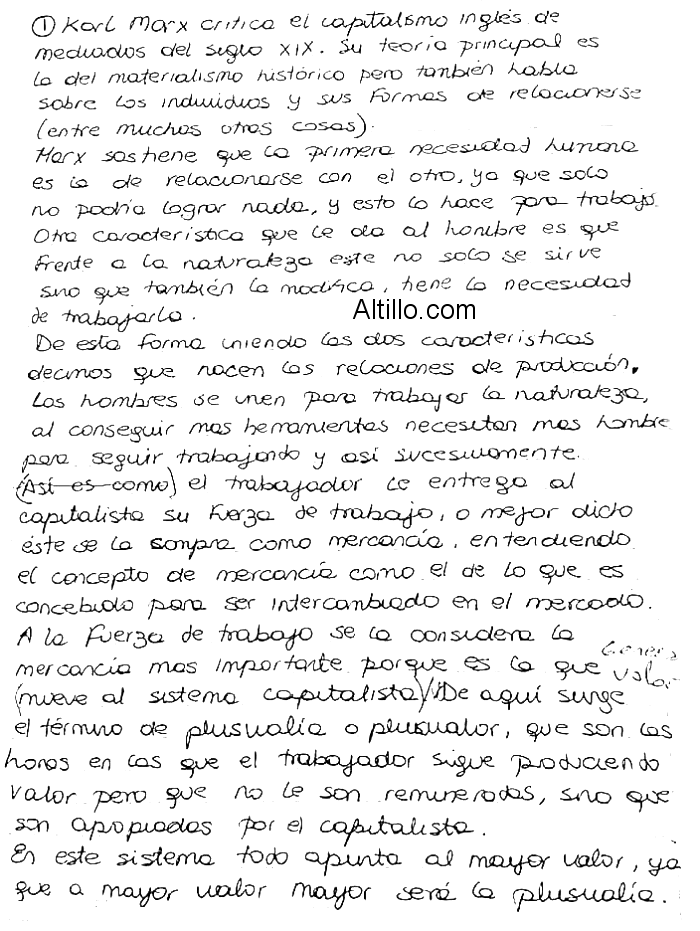 ① Karl Marx critica el capitalismo inglés de
mediados del siglo XIX. Su teoría principal es
la del materialismo histórico pero también habla
sobre los individuos y sus formas de relacionarse
(entre muchas otras cosas).
Marx sostiene que la primera necesidad humana
es la de relacionarse con el otro, ya que solo
no podría lograr nada, y esto lo hace para trabajar.
Otra característica que le da al hombre es que
frente a la naturaleza este no solo se sirve
sino que también la modifica, tiene la necesidad
de trabajarla.
Altillo.com
De esta forma uniendo las dos características
decimos que nacen las relaciones de producción.
Los hombres se unen para trabajar la naturaleza,
al conseguir mas herramientas necesitan mas hombre
para seguir trabajando y así sucesivamente.
(Así es como) el trabajador le entrega al
capitalista su fuerza de trabajo, o mejor dicto
éste se la compra como mercancía, entendiendo
el concepto de mercancía como el de lo que es
concebido para ser intercambiado en el mercado.
A la fuerza de trabajo se la considera la
mercancía mas importante porque es la que genera valor
(mueve al sistema capitalista). De aquí surge
el término de plusvalía o plusvalor, que son las
horas en las que el trabajador sigue produciendo
valor pero que no le son remuneradas, sino que
son apropiadas por el capitalista.
En este sistema todo apunta al mayor valor, ya
que a mayor valor mayor será la plusvalía.